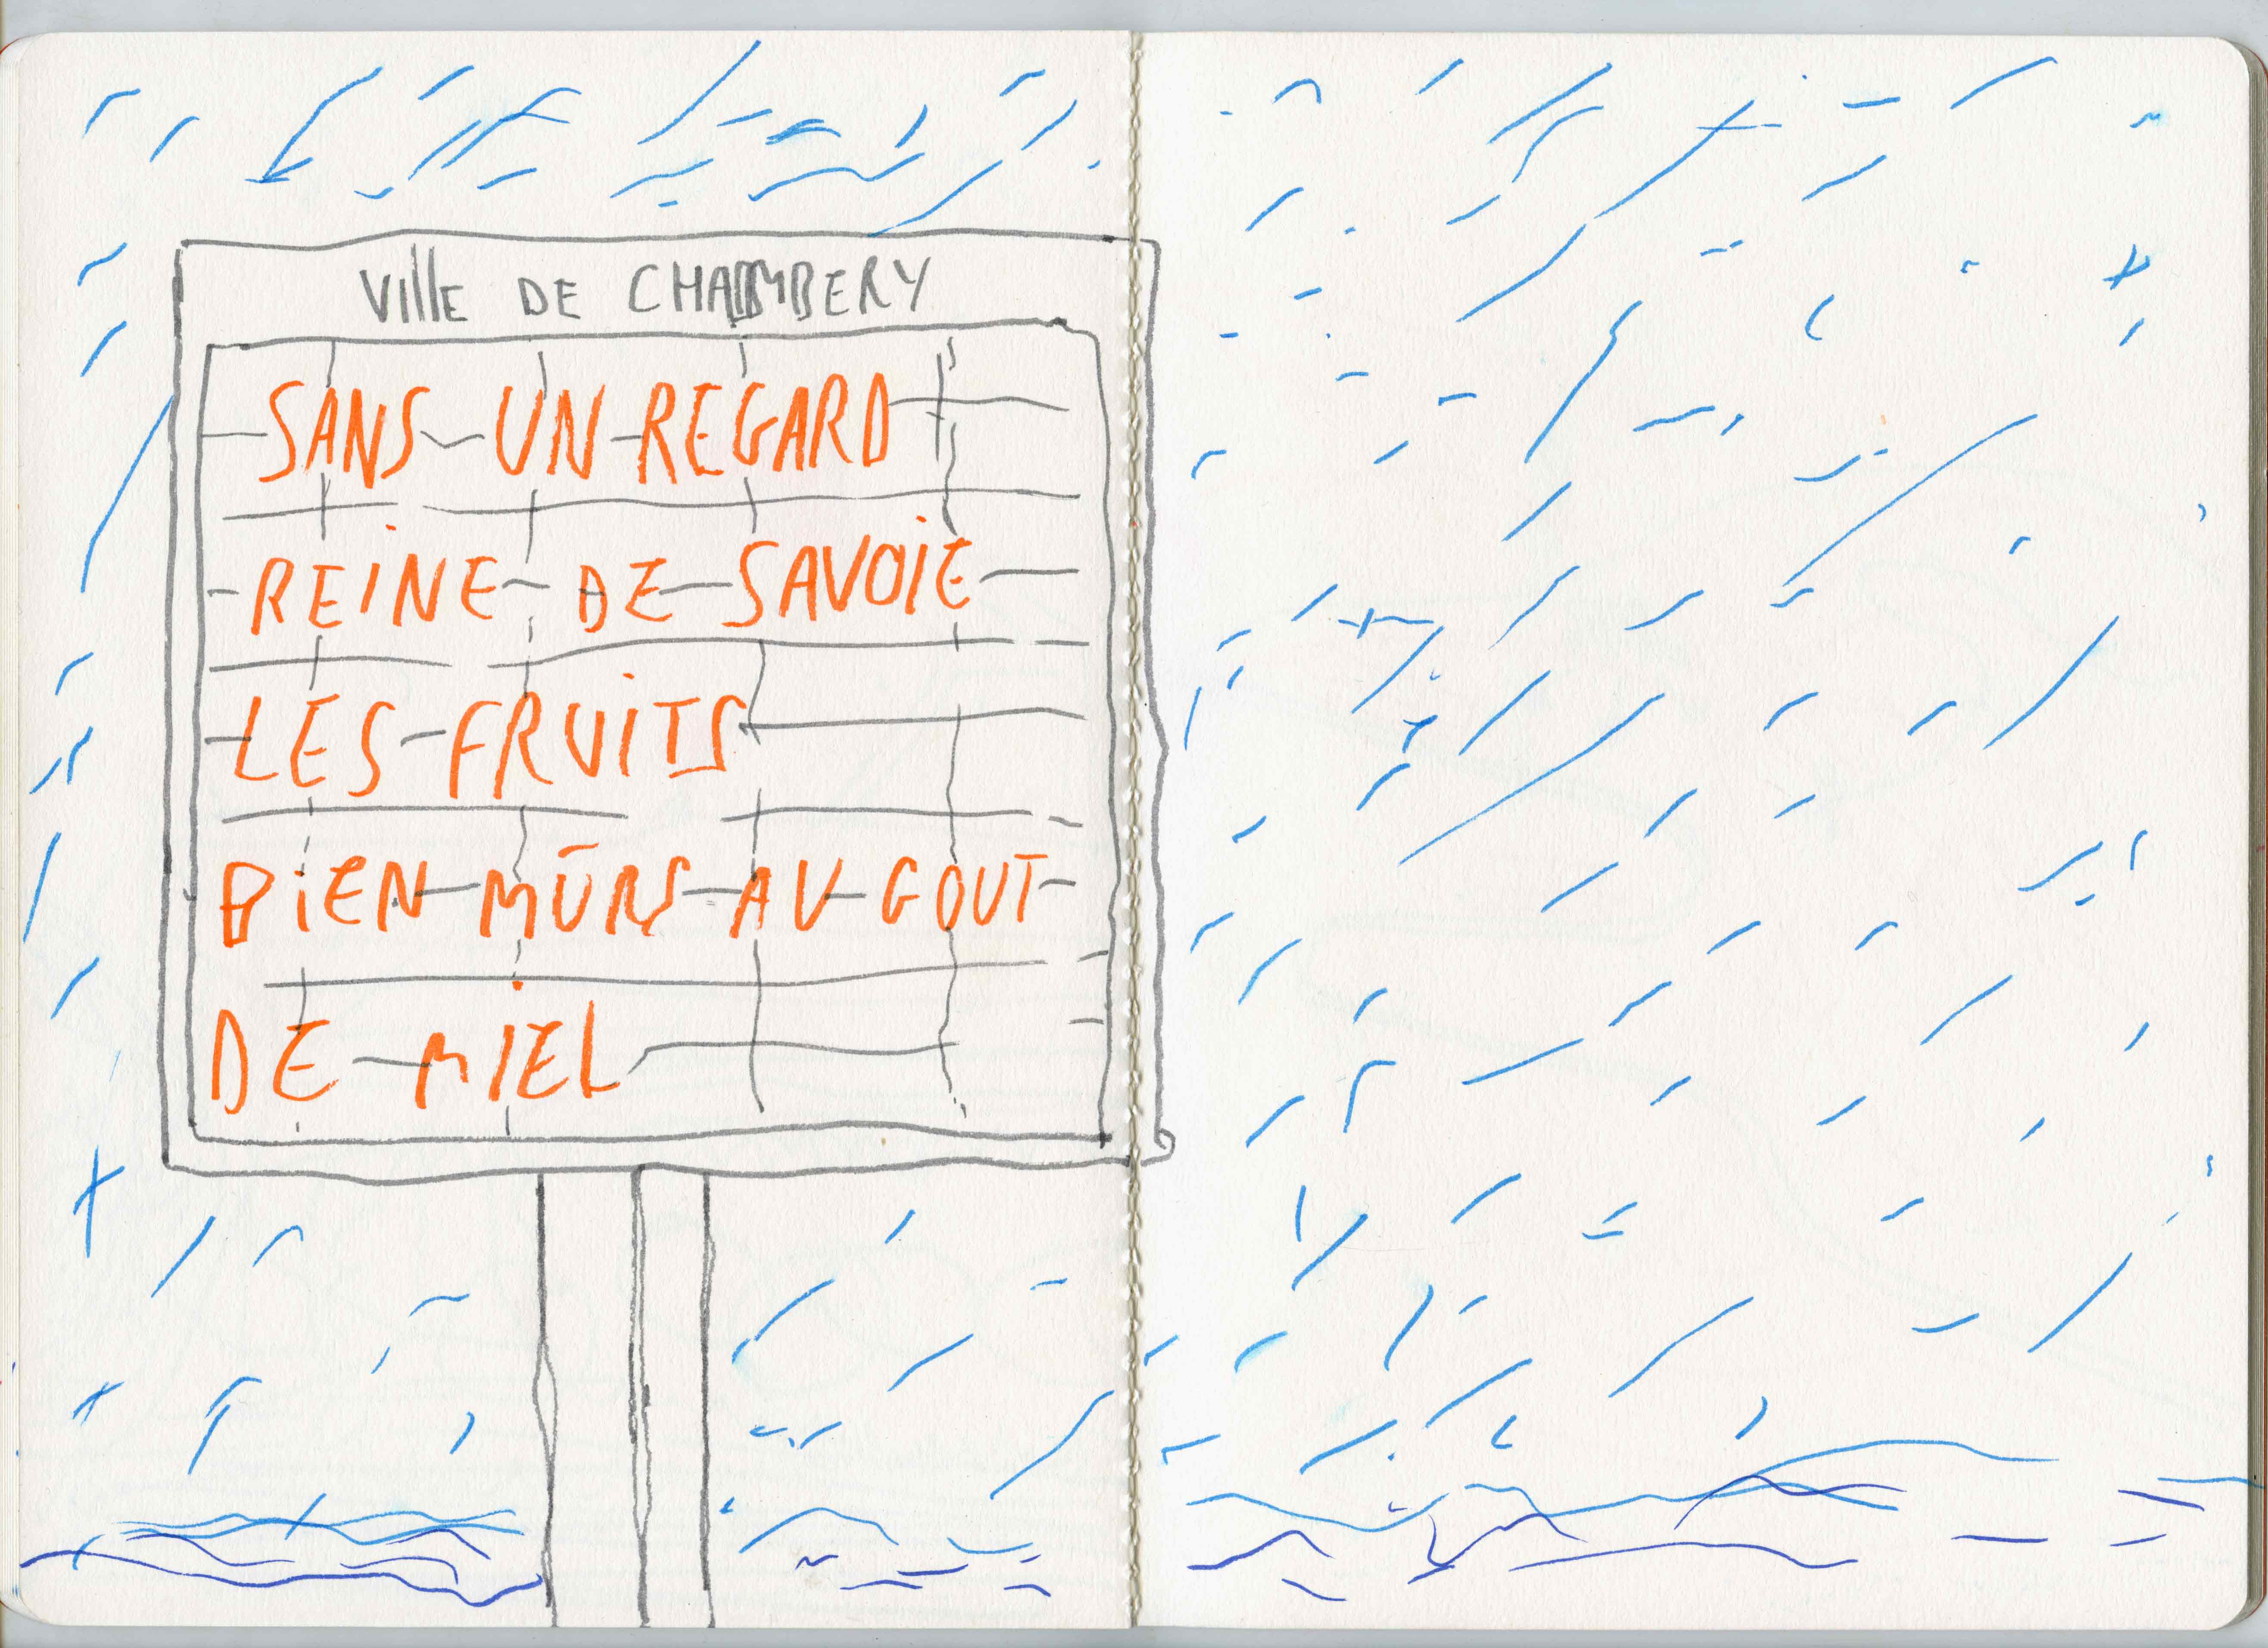 VillE DE CHAMBERY
SANS UN REGARD
REINE DE SAVOIE
LES FRUITS
BIEN MÛRS AU GOUT
DE MIEL